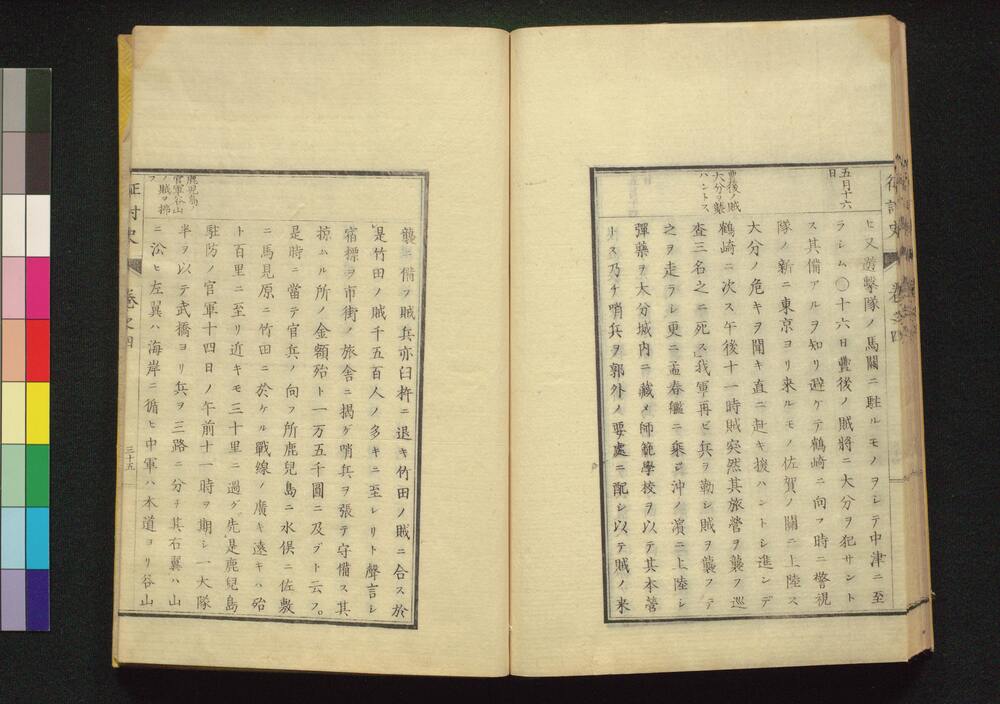 征討史 巻之四
五月十六
日
ヒ又遊擊隊ノ馬關ニ駐ルモノヲシテ中津ニ至
ラシム〇十六日豐後ノ賊將ニ大分ヲ犯サント
ス其備アルヲ知リ避ケテ鶴崎ニ向フ時ニ警視
隊ノ新ニ東京ヨリ来ルモノ佐賀ノ關ニ上陸ス
大分ノ危キヲ聞キ直ニ赴キ援ハントシ進ンデ
豐後ノ賊
大分ヲ襲
ハントス
鶴崎ニ次ス午後十一時賊突然其旅營ヲ襲フ巡
査三名之ニ死ス我軍再ビ兵ヲ勒シ賊ヲ襲フテ
之ヲ走ラシ更ニ孟春艦ニ乘シ沖ノ濱ニ上陸シ
彈藥ヲ大分城内ニ藏メ師範學校ヲ以テ其本營
トス乃チ哨兵ヲ郭外ノ要處ニ配シ以テ賊ノ来
襲ニ備フ賊兵亦臼杵ニ退キ竹田ノ賊ニ合ス於
是竹田ノ賊千五百人ノ多キニ至レリト聲言シ
宿標ヲ市街ノ旅舎ニ揭ゲ哨兵ヲ張テ守備ス其
掠ムル所ノ金額殆ト一万五千圓ニ及ブト云フ。
是時ニ當テ官兵ノ向フ所鹿兒島ニ水俣ニ佐敷
ニ馬見原ニ竹田ニ於ケル戰線ノ廣キ遠キハ殆
ト百里ニ至リ近キモ三十里ニ過グ先是鹿兒島
鹿児島ノ
官軍谷山
ノ賊ヲ拂
フ
駐防ノ官軍十四日ノ午前十一時ヲ期シ一大隊
半ヲ以テ武橋ヨリ兵ヲ三路ニ分チ其右翼ハ山
ニ沿ヒ左翼ハ海岸ニ循ヒ中軍ハ本道ヨリ谷山
征討史 巻之四 三十五